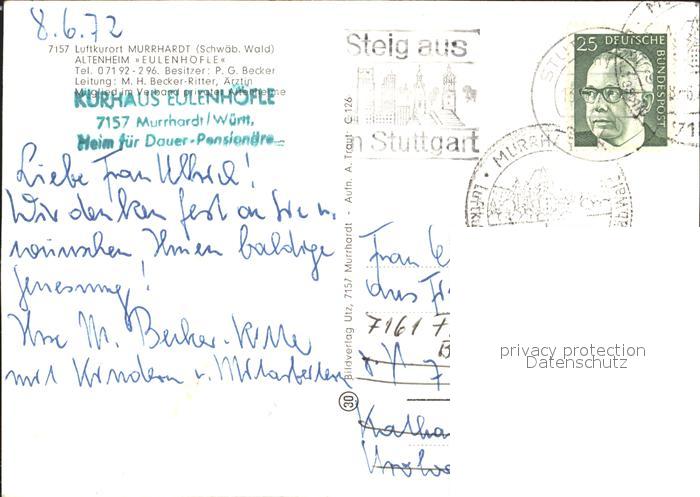 8.6.72
7157 Luftkurort MURRHARDT (Schwäb. Wald)
ALTENHEIM »EULENHÖFLE«
Tel. 07192-296. Besitzer: P. G. Becker
Leitung: M. H. Becker-Ritter, Ärztin
Mitglied im Verband privater Altenheime
KURHAUS EULENHÖFLE
7157 Murrhardt/Württ.
Heim für Dauer-Pensionäre
Liebe Frau Ullrich!
Wir denken fest an Sie u.
wünschen Ihnen baldige
Genesung!
Ihre M. Becker-Ritter
mit Kindern u. Mitarbeitern
Bildverlag Utz, 7157 Murrhardt - Aufn. A. Traut C 126
30
Steig aus
in Stuttgart
25 DEUTSCHE
BUNDESPOST
MURRHA
LUFTK
71
Frau
aus
7161
7
Katha
privacy protection
Datenschutz